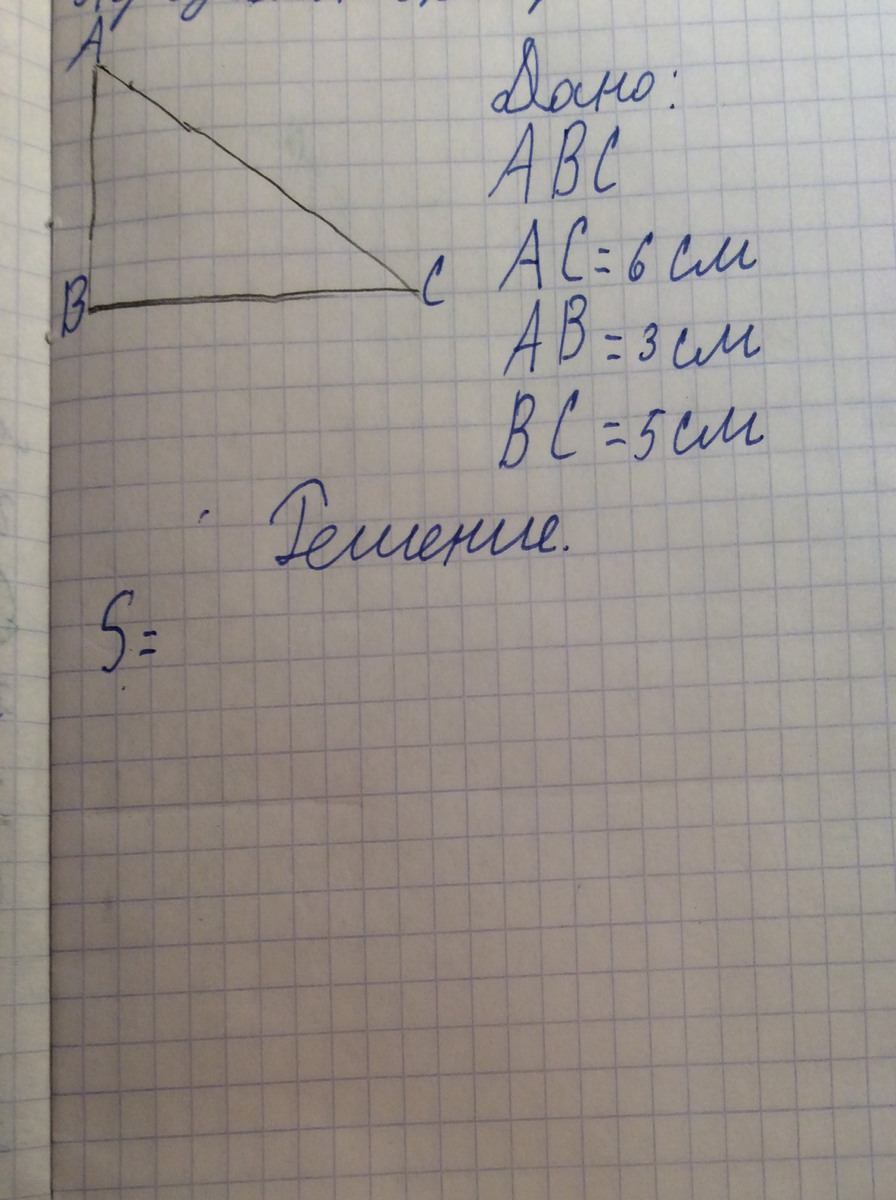 A
B
C
Дано:
ABC
AC=6 см
AB=3 см
BC=5 см
Решение.
S=